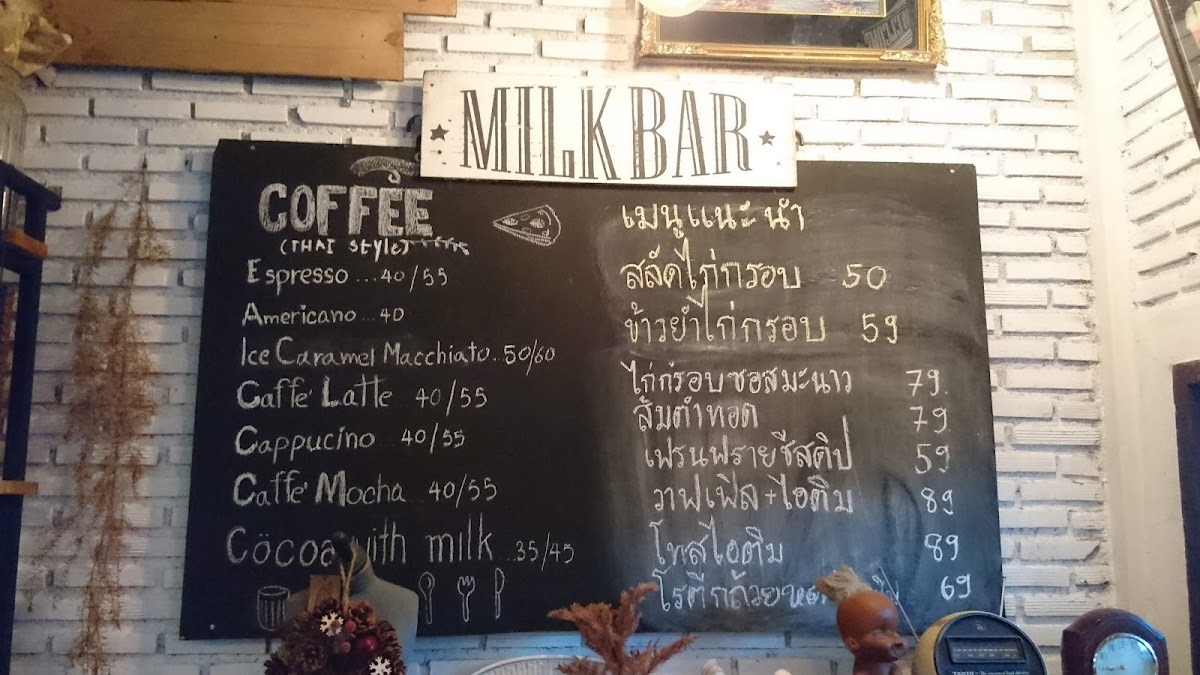 MILK BAR
COFFEE
(THAI Style)
Espresso ... 40/55
Americano ... 40
Ice Caramel Macchiato .. 50/60
Caffe' Latte 40/55
Cappucino 40/55
Caffe' Mocha 40/55
Cocoa with milk ... 35/45
เมนูแนะนำ
สลัดไก่กรอบ 50
ข้าวยำไก่กรอบ 59
ไก่กรอบซอสมะนาว 79.
ส้มตำทอด 79.
เฟรนฟรายชีสดิป 59
วาฟเฟิล+ไอติม 89
โทสไอติม 89
69